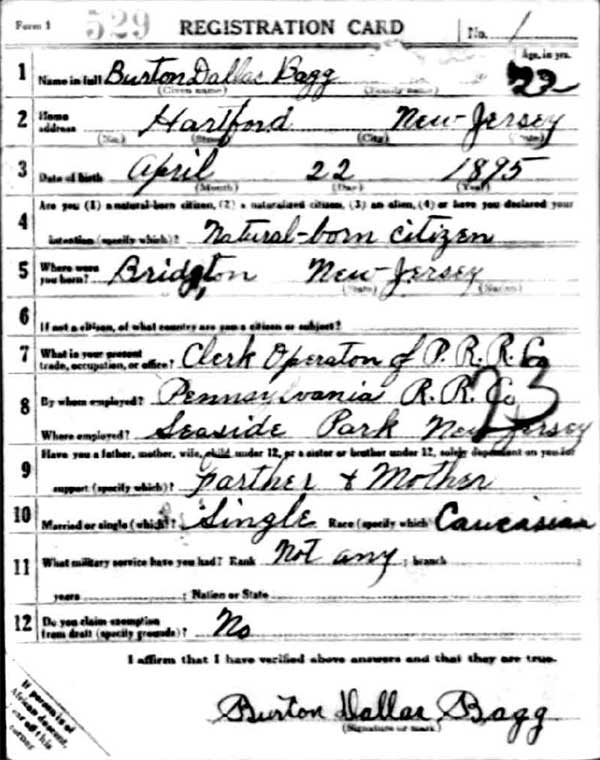 Form 1 529 REGISTRATION CARD No. 1
Age, in yrs.
1 Name in full Burton Dallas Bagg 22
(Given name) (Family name)
2 Home address Hartford New-Jersey
(No.) (Street) (City) (State)
3 Date of birth April 22 1895
(Month) (Day) (Year)
Are you (1) a natural-born citizen, (2) a naturalized citizen, (3) an alien, (4) or have you declared your
4 intention (specify which)? Natural-born citizen
5 Where were you born? Bridgton New-Jersey
(State) (Nation)
6 If not a citizen, of what country are you a citizen or subject?
7 What is your present trade, occupation, or office? Clerk Operaton of P. R. R. Co
8 By whom employed? Pennsylvania R. R. Co 23
Where employed? Seaside Park New Jersey
Have you a father, mother, wife, child under 12, or a sister or brother under 12, solely dependent on you for
9 support (specify which)? Farther & Mother
10 Married or single (which)? Single Race (specify which) Caucasian
11 What military service have you had? Rank Not any ; branch ;
years ; Nation or State
12 Do you claim exemption from draft (specify grounds)? No
I affirm that I have verified above answers and that they are true.
Burton Dallas Bagg
(Signature or mark)
If person is of
African descent,
tear off this
corner